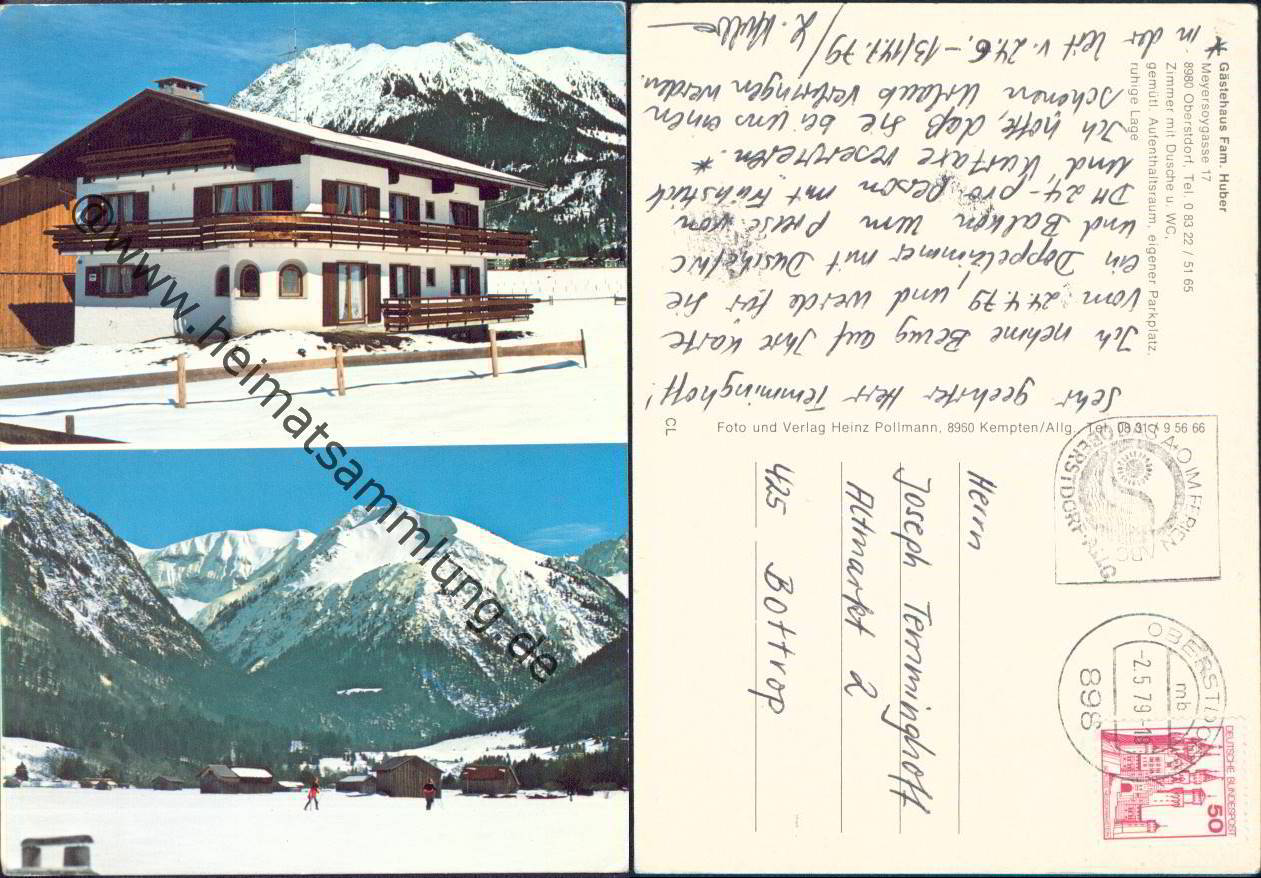 ©www.heimatsammlung.de
Gästehaus Fam. Huber
Meyersoygasse 17
8980 Oberstdorf, Tel. 0 83 22 / 51 65
Zimmer mit Dusche u. WC,
gemütl. Aufenthaltsraum, eigener Parkplatz,
ruhige Lage
Sehr geehrter Herr Temminghoff!
Ich nehme Bezug auf Ihre Karte
vom 24.4.79, und werde für Sie
ein Doppelzimmer mit Dusche/WC
und Balkon zum Preise von
DM 24,- pro Person mit Frühstück
und Kurtaxe reservieren. *
Ich hoffe, daß Sie bei uns einen
schönen Urlaub verbringen werden.
* in der Zeit v. 24.6. - 13/14.7.79/
Foto und Verlag Heinz Pollmann, 8960 Kempten/Allg. Tel. 08 31 / 9 56 66
CL
Herrn
Joseph Temminghoff
Altmarkt 2
425 Bottrop
OBERSTDORF
-2.5.79-18
mb
898
DEUTSCHE BUNDESPOST
50